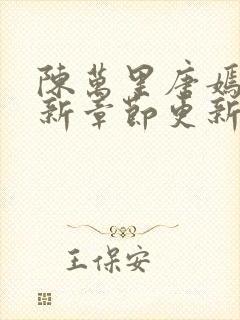 陳萬里唐嫣
新章節更新
王保安